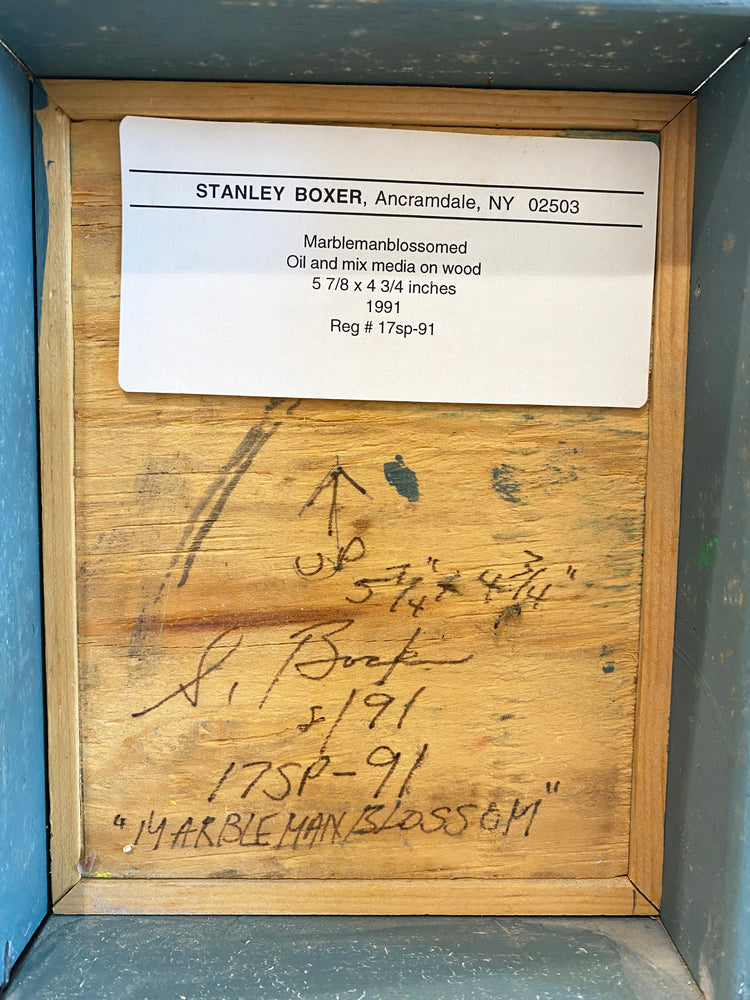 STANLEY BOXER, Ancramdale, NY 02503
Marblemanblossomed
Oil and mix media on wood
5 7/8 x 4 3/4 inches
1991
Reg # 17sp-91
UP
5 7/4" x 4 3/4"
S. Boxer
/91
17SP-91
"MARBLEMANBLOSSOM"